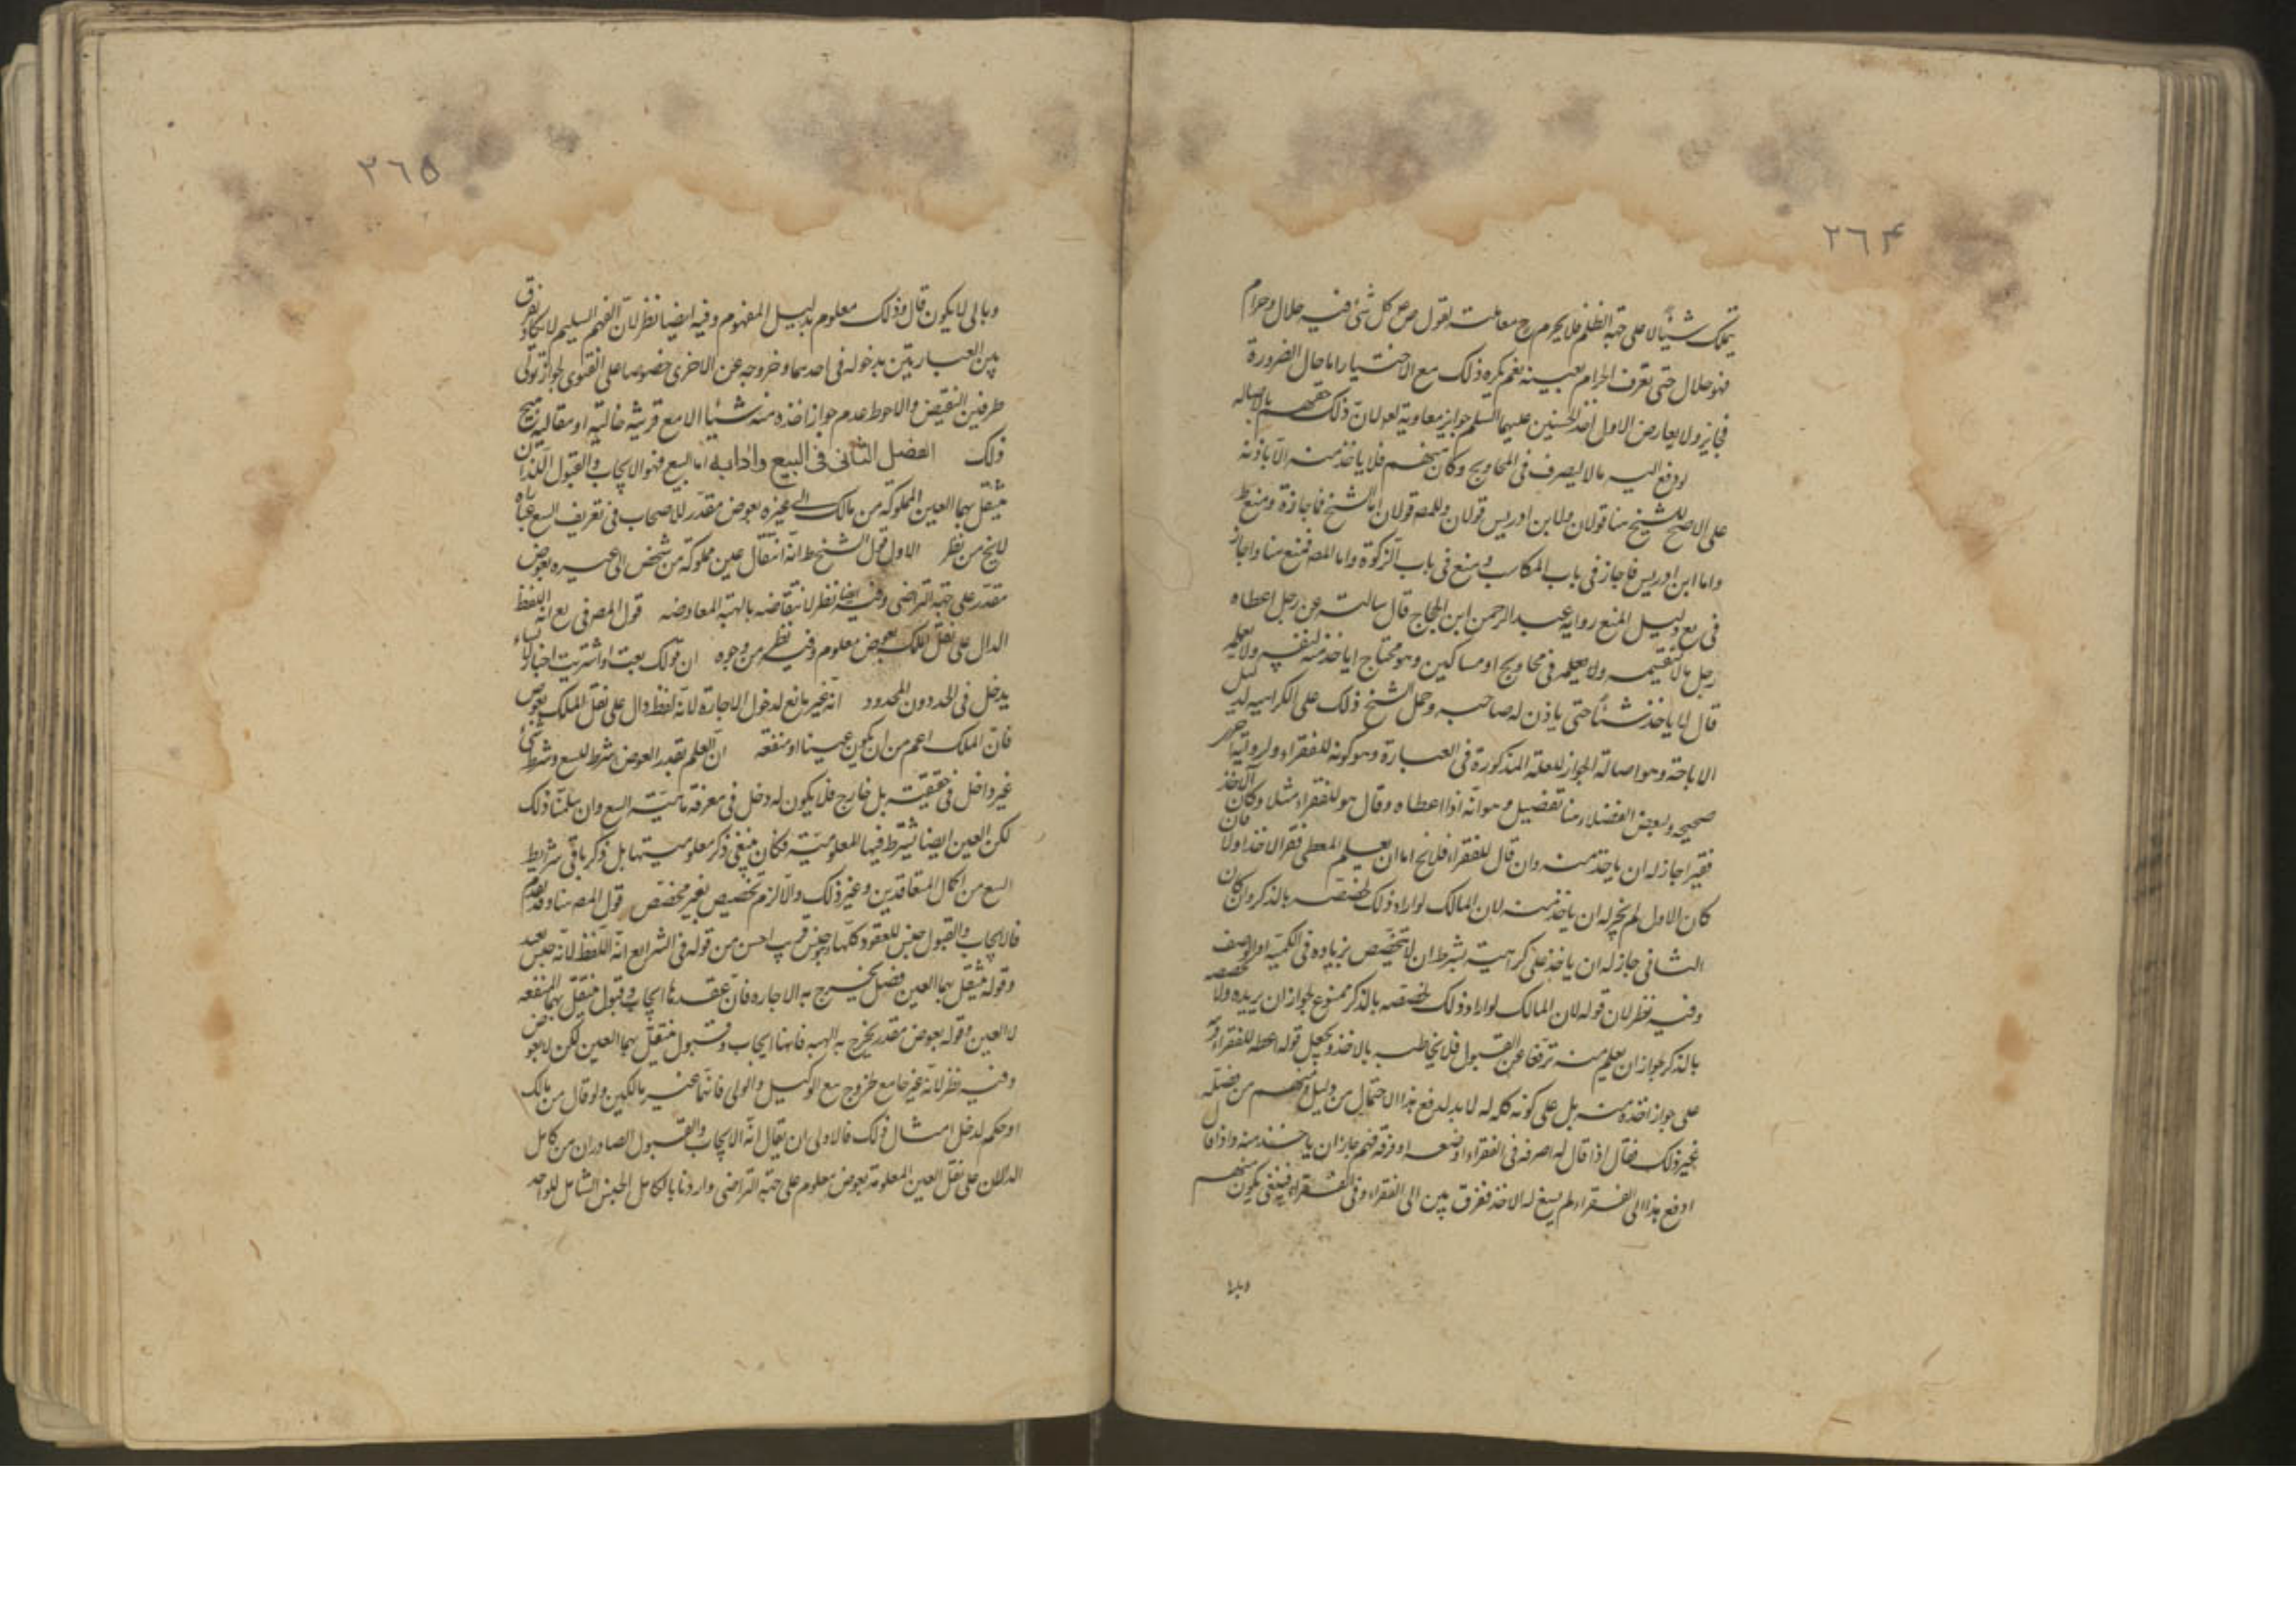 ٢٦۴
يملك شيئا الا على جهة الظلم فلا يحرم ح معاملته لقول ص كل شئ فيه حلال وحرام
فهو حلال حتى تعرف الحرام بعينه نعم يكره ذلك مع الاختيار اما حال الضرورة
فجايز ولا يعارض الاول اخذ الحسنين عليهما السلم جوايز معاوية لان ذلك حقهم بالاصاله
لو دفع اليه مالا ليصرف فى المحاويج وكان منهم فلا ياخذ منه الا باذنه
على الاصح للشيخ هنا قولان ولابن ادريس قولان وللمص قولان اما الشيخ فاجازة ومنع ط
واما ابن ادريس فاجاز فى باب المكاسب ومنع فى باب الزكوة واما المص فمنع هنا واجاز
فى يع دليل المنع رواية عبد الرحمن ابن الحجاج قال سالته عن رجل اعطاه
رجل مالا ليقسمه ولا يعلمه فى محاويج او مساكين وهو محتاج اياخذ منه لنفسه ولا يعلمه
قال لا ياخذ شيئا حتى ياذن له صاحبه وحمل الشيخ ذلك على الكراهيه لدليل
الاباحة وهو اصالة الجواز للعلة المذكورة فى العبارة وهو كونه للفقراء ولرواية
صحيحه ولبعض الفضلاء هنا تفضيل وهو انه اذا اعطاه وقال هو للفقراء مثلا وكان الآخذ
فقيرا جاز له ان ياخذ منه وان قال للفقراء فلا يخ اما ان يعلم المعطى فقر الاخذ اولا فان
كان الاول لم يجز له ان ياخذ منه لان المالك لو اراد ذلك لخصصه بالذكر وان كان
الثانى جاز له ان ياخذ على كراهية بشرط ان لا يتخصص بزياده فى الكمية او الوصف
وفيه نظر لان قوله لان المالك لو اراد ذلك لخصصه بالذكر ممنوع لجواز ان يريده ولا يخصصه
بالذكر لجواز ان يعلم منه ترفعا عن القبول فلا يخاطبه بالاخذ ويجعل قوله اعطه للفقراء
على جواز اخذه منه بل على كونه كله له لا بد لدفع هذا الاحتمال من دليل ومنهم من فصله
بغير ذلك فقال اذا قال له اصرفه فى الفقراء او ضعه او فرقه فيهم جاز ان ياخذ منه واذا قال
ادفع هذا الى الفقراء لم يسغ له الاخذ ففرق بين الى الفقراء وفى الفقراء فبفى يكون منهم
وبالى
٢٦۵
وبالى لا يكون قال وذلك معلوم بدليل المفهوم وفيه ايضا نظر لان الفهم السليم لا يكاد يفرق
بين العبارتين بدخوله فى احدهما وخروجه عن الاخرى خصوصا على الفتوى لجواز تولى
طرفين النقيض والاحوط عدم جواز اخذه منه شيئا الا مع قرينة حالية او مقالية تبيح
ذلك الفصل الثانى فى البيع وادابه اما البيع فهو الايجاب والقبول اللذان
ينتقل بهما العين المملوكة من مالك الى غيره بعوض مقدر للاصحاب فى تعريف البيع عبارات
لا يخ من نظر الاول قول الشيخ ط انه انتقال عين مملوكة من شخص الى غيره بعوض
مقدر على جهة التراضى وفيه ايضا نظر لانتقاضه بالهبة المعاوضه قول المص فى يع انه اللفظ
الدال على نقل الملك بعوض معلوم وفيه نظر من وجوه ان قولك بعت او اشتريت اخبارا
يدخل فى الحد دون المحدود انه غير مانع لدخول الاجارة لانه لفظ دال على نقل الملك بعوض
فان الملك اعم من ان يكون عينا او منفعة ان العلم بقدر العوض شرط للبيع وشرط الشئ
غير داخل فى حقيقته بل خارج فلا يكون له دخل فى معرفة ماهية البيع وان سلمنا ذلك
لكن العين ايضا يشترط فيها المعلومية فكان ينبغى ذكر معلوميتها بل ذكر باقى شرايط
البيع من كمال المتعاقدين وغير ذلك والا لزم تخصيص بغير مخصص قول المص هنا وقد تقدم
فالايجاب والقبول جنس للعقود كلها وهو جنس قريب احسن من قوله فى الشرايع انه اللفظ لانه جنس بعيد
وقوله ينتقل بهما العين فصل يخرج به الاجاره فان عقدها ايجاب وقبول ينتقل بهما المنفعه
لا العين وقوله بعوض مقدر يخرج به الهبه فانها ايجاب وقبول ينتقل بهما العين لكن لا بعوض
وفيه نظر لانه غير جامع لخروج مع الوكيل والولى فانهما غير مالكين ولو قال من مالك
او حكمه لدخل امثال ذلك فالاولى ان يقال انه الايجاب والقبول الصادران من كامل
الدالان على نقل العين المعلومة بعوض معلوم على جهة التراضى وارادنا بالكامل الجنس الشامل للواحد